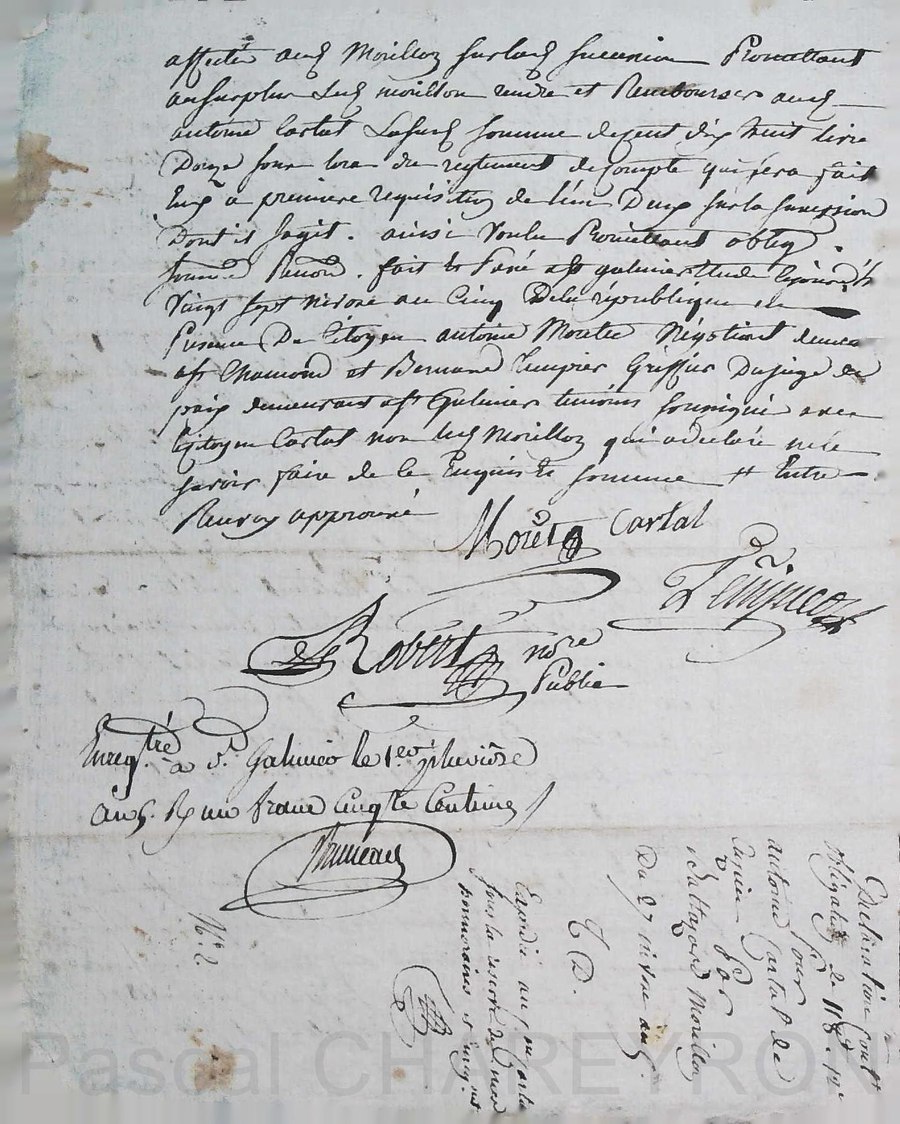 affecté aud Morillon sur lad succession Promettant
au surplus led morillon rendre et Rembourser aud
antoine Cartal Lasusd somme de cent dix huit livre
Douze sous lors du reglement de compte qui sera fait
Entr'eux a premiere requisition de l'un D'eux sur la succession
Dont il sagit. ainsi voulu Promettant oblig.
soumis Renon. fait et Passé a st galmier Etude cejourd'h
vingt sept nivose an Cinq De la république en
Presence Du Citoyen antoine Négotiant demeu
a st Chamond et Greffier Du juge de
paix demeurant a st Galmier temoins soussignés avec
le Citoyen Cartal non led Morillon qui a declaré ne le
savoir faire de ce Enquis et somme # Entre
approuvé
Cartal
Robert nore
Public
Enregtré à st Galmier le 1er pluviôse
an 5. R un franc cinqte Centimes
N° 2
obligation de 118#
pour
antoine Cartal de
par
Morillon
Du 27 nivose an 5.
T D.
Expedié
Pascal CHAREYRON